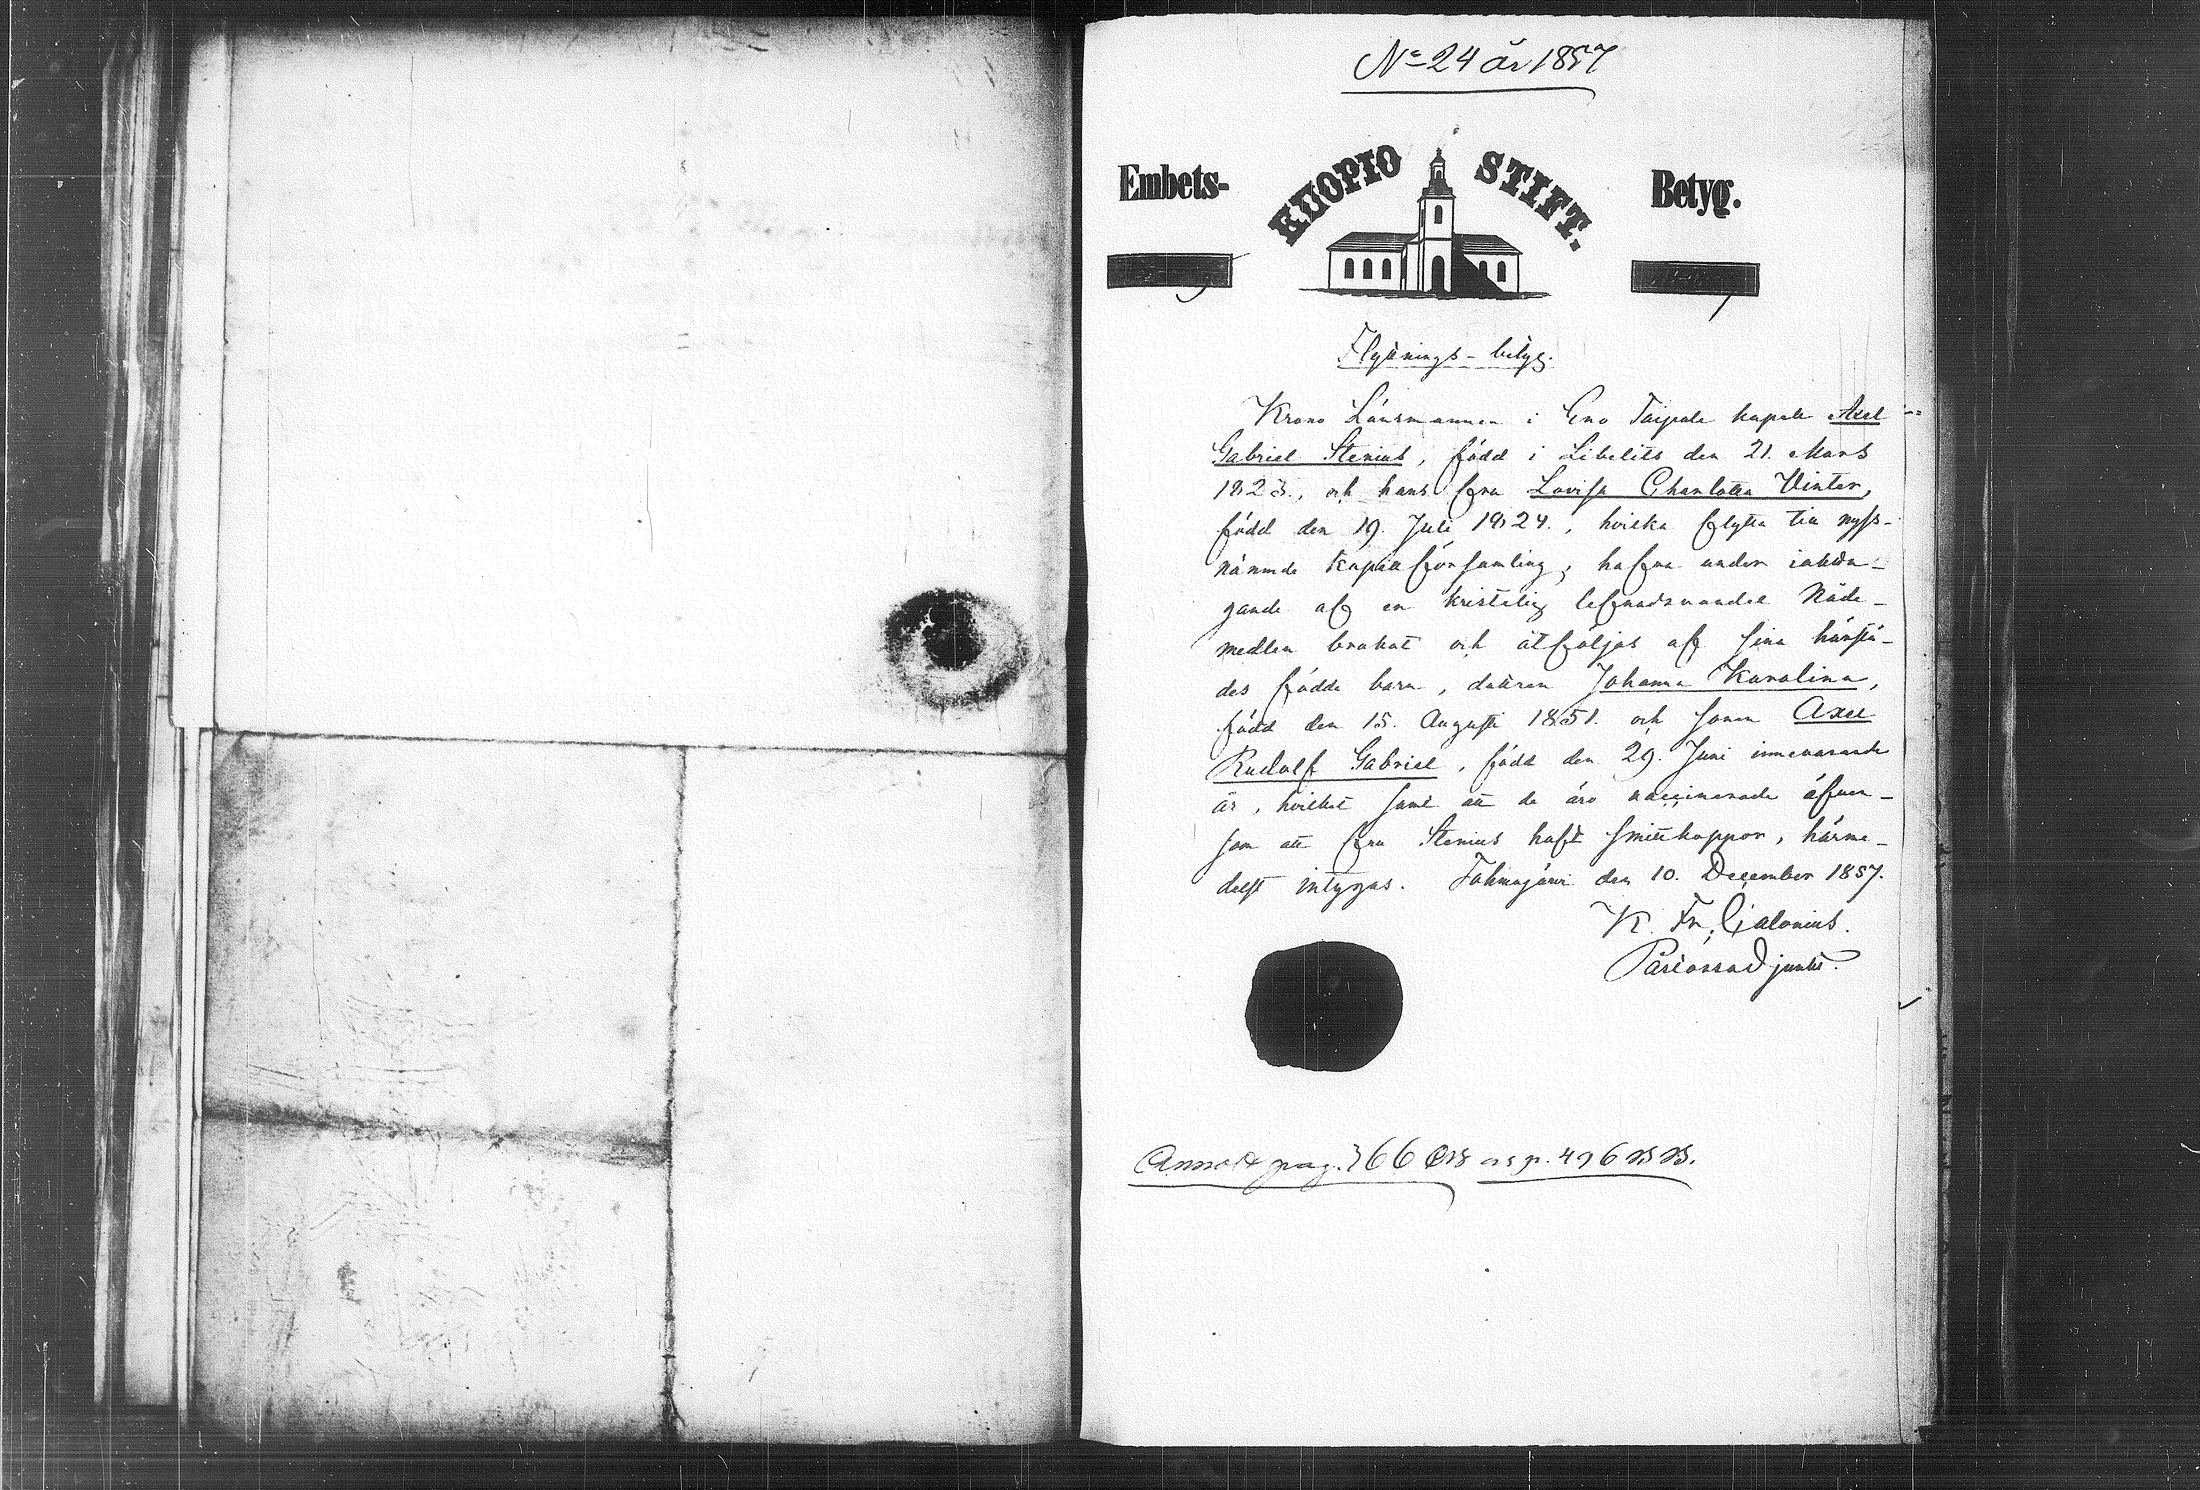 No 24 år 1857
Embets- KUOPIO STIFT. Betyg.
Flyttnings-betyg.
Krono Länsmannen i Eno Taipale kapell Axel
Gabriel Stenius, född i Libelits den 21. Mars
1823., och hans fru Lovisa Charlotta Winter,
född den 19. Juli 1824., hvilka flytta till nyss-
nämnde kapellförsamling, hafva under iaktta-
gande af en kristelig lefnadsvandel Nåde-
medlen brukat och åtföljas af sina härstä-
des födde barn, dottren Johanna Karolina,
född den 15. Augusti 1851. och sonen Axel
Rudolf Gabriel, född den 29. Juni innevarande
år, hvilket samt att de äro vaccinerade äfven-
som att fru Stenius haft smittkoppor, härme-
delst intygas. Tohmajärvi den 10. December 1857.
K. Fr. Calonius.
Pastorsadjunkt.
Annot pag. 366 p. 496